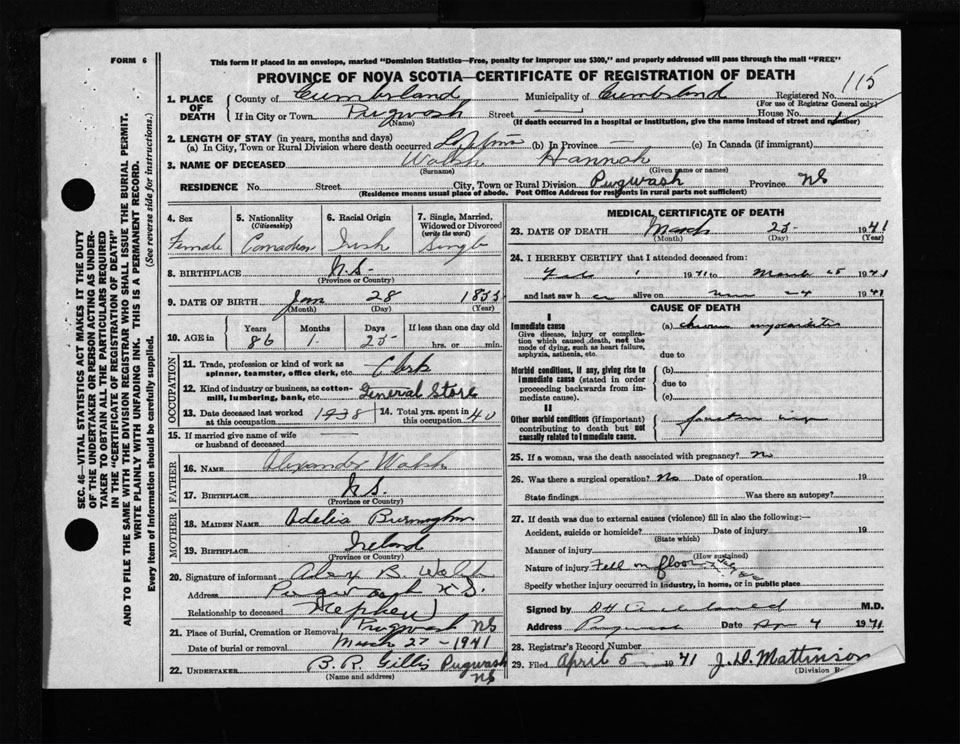 FORM 6
This form if placed in an envelope, marked "Dominion Statistics—Free, penalty for improper use $300," and properly addressed will pass through the mail "FREE"
PROVINCE OF NOVA SCOTIA—CERTIFICATE OF REGISTRATION OF DEATH
115
1. PLACE OF DEATH
County of Cumberland Municipality of Cumberland Registered No.
(For use of Registrar General only)
If in City or Town Pugwash Street — House No.
(Name) (If death occurred in a hospital or institution, give the name instead of street and number)
2. LENGTH OF STAY (in years, months and days)
(a) In City, Town or Rural Division where death occurred (b) In Province — (c) In Canada (if immigrant)
3. NAME OF DECEASED Walsh Hannah
(Surname) (Given name or names)
RESIDENCE No. Street City, Town or Rural Division Pugwash Province NS
(Residence means usual place of abode. Post Office Address for residents in rural parts not sufficient)
4. Sex Female
5. Nationality (Citizenship) Canadian
6. Racial Origin Irish
7. Single, Married, Widowed or Divorced (write the word) Single
8. BIRTHPLACE N.S.
(Province or Country)
9. DATE OF BIRTH Jan 28 1855
(Month) (Day) (Year)
10. AGE in Years 86 Months 1 Days 25 If less than one day old hrs. or min.
OCCUPATION
11. Trade, profession or kind of work as spinner, teamster, office clerk, etc. Clerk
12. Kind of industry or business, as cotton-mill, lumbering, bank, etc. General Store
13. Date deceased last worked at this occupation 1938
14. Total yrs. spent in this occupation 40
15. If married give name of wife or husband of deceased
FATHER
16. NAME Alexander Walsh
17. BIRTHPLACE N.S.
(Province or Country)
MOTHER
18. MAIDEN NAME Adelia
19. BIRTHPLACE Ireland
(Province or Country)
20. Signature of informant Alex R. Walsh
Address Pugwash N.S.
Relationship to deceased (Nephew)
21. Place of Burial, Cremation or Removal Pugwash NS
Date of burial or removal March 27 - 1941
22. UNDERTAKER B. R. Gillis Pugwash NS
(Name and address)
MEDICAL CERTIFICATE OF DEATH
23. DATE OF DEATH March 25 1941
(Month) (Day) (Year)
24. I HEREBY CERTIFY that I attended deceased from:
1 1941 to March 25 1941
and last saw her alive on 24 1941
CAUSE OF DEATH
I
Immediate cause
Give disease, injury or complication which caused death, not the mode of dying, such as heart failure, asphyxia, asthenia, etc.
(a) chronic myocarditis
due to
Morbid conditions, if any, giving rise to immediate cause (stated in order proceeding backwards from immediate cause).
(b)
due to
(c)
II
Other morbid conditions (if important) contributing to death but not causally related to immediate cause.
25. If a woman, was the death associated with pregnancy? No
26. Was there a surgical operation? No Date of operation 19
State findings Was there an autopsy?
27. If death was due to external causes (violence) fill in also the following:—
Accident, suicide or homicide? Date of injury 19
(State which)
Manner of injury
(How sustained)
Nature of injury Fell on floor
Specify whether injury occurred in industry, in home, or in public place
Signed by M.D.
Address Pugwash Date Apr 4 1941
28. Registrar's Record Number
29. Filed April 5 1941 J. D. Mattinson
(Division
SEC. 46—VITAL STATISTICS ACT MAKES IT THE DUTY
OF THE UNDERTAKER OR PERSON ACTING AS UNDER-
TAKER TO OBTAIN ALL THE PARTICULARS REQUIRED
IN THE "CERTIFICATE OF REGISTRATION OF DEATH"
AND TO FILE THE SAME WITH THE DIVISION REGISTRAR WHO SHALL ISSUE THE BURIAL PERMIT.
WRITE PLAINLY WITH UNFADING INK. THIS IS A PERMANENT RECORD.
Every item of information should be carefully supplied. (See reverse side for instructions.)